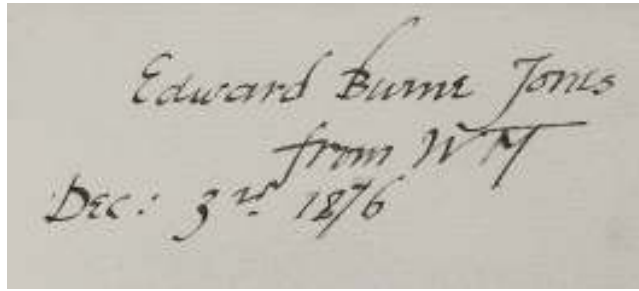 Edward Burne Jones
from WM
Dec: 3rd. 1876